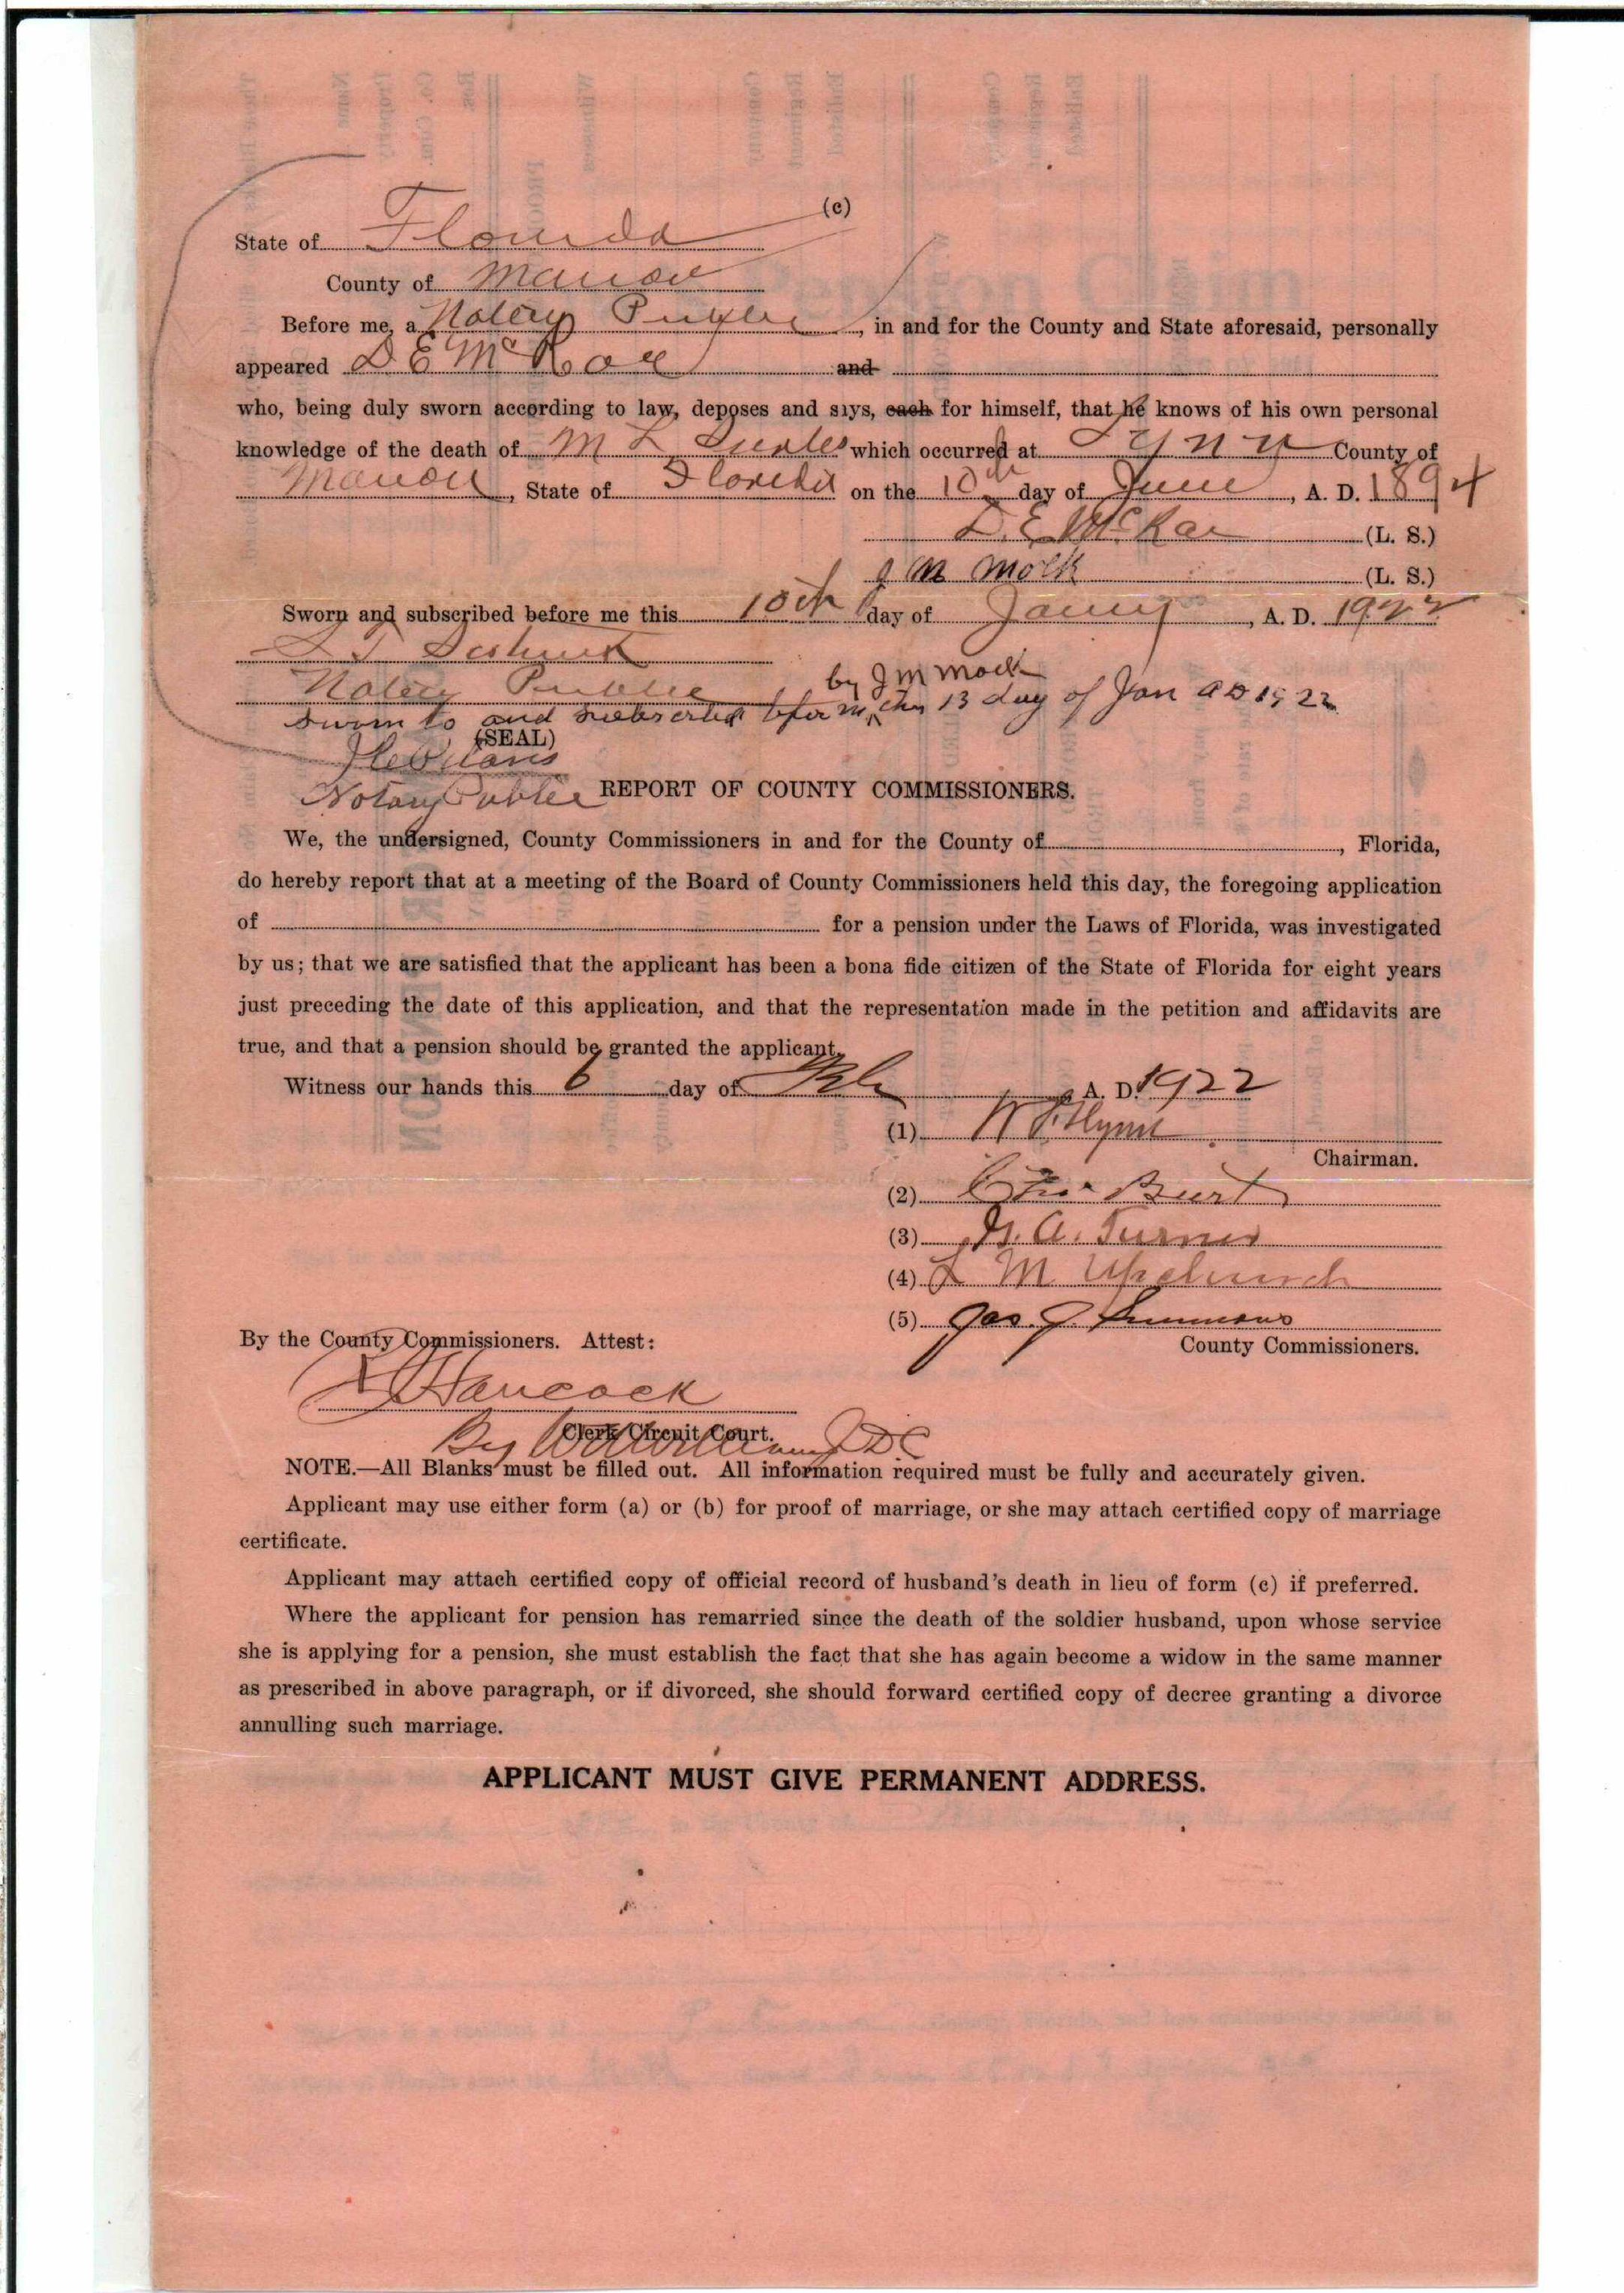 (c)
State of Florida
County of Marion
Before me, a Notery Public, in and for the County and State aforesaid, personally
appeared D E McRae and
who, being duly sworn according to law, deposes and says, each for himself, that he knows of his own personal
knowledge of the death of M L which occurred at Lynn County of
Marion, State of Florida on the 10th day of June, A. D. 1894
D. E. McRae (L. S.)
J M Mock (L. S.)
Sworn and subscribed before me this 10th day of Janny, A. D. 1922
Notery Public
by J M Mock
sworn to and subscribed before me this 13 day of Jan AD 1922
(SEAL)
Notary Public
REPORT OF COUNTY COMMISSIONERS.
We, the undersigned, County Commissioners in and for the County of , Florida,
do hereby report that at a meeting of the Board of County Commissioners held this day, the foregoing application
of for a pension under the Laws of Florida, was investigated
by us; that we are satisfied that the applicant has been a bona fide citizen of the State of Florida for eight years
just preceding the date of this application, and that the representation made in the petition and affidavits are
true, and that a pension should be granted the applicant.
Witness our hands this 6 day of Feb, A. D. 1922
(1) Flynn
Chairman.
(2) Burt
(3) A. Turner
(4) L M Upchurch
(5) Jas. J. Simmons
By the County Commissioners. Attest:
County Commissioners.
Hancock
Clerk Circuit Court.
By DC
NOTE.—All Blanks must be filled out. All information required must be fully and accurately given.
Applicant may use either form (a) or (b) for proof of marriage, or she may attach certified copy of marriage
certificate.
Applicant may attach certified copy of official record of husband's death in lieu of form (c) if preferred.
Where the applicant for pension has remarried since the death of the soldier husband, upon whose service
she is applying for a pension, she must establish the fact that she has again become a widow in the same manner
as prescribed in above paragraph, or if divorced, she should forward certified copy of decree granting a divorce
annulling such marriage.
APPLICANT MUST GIVE PERMANENT ADDRESS.